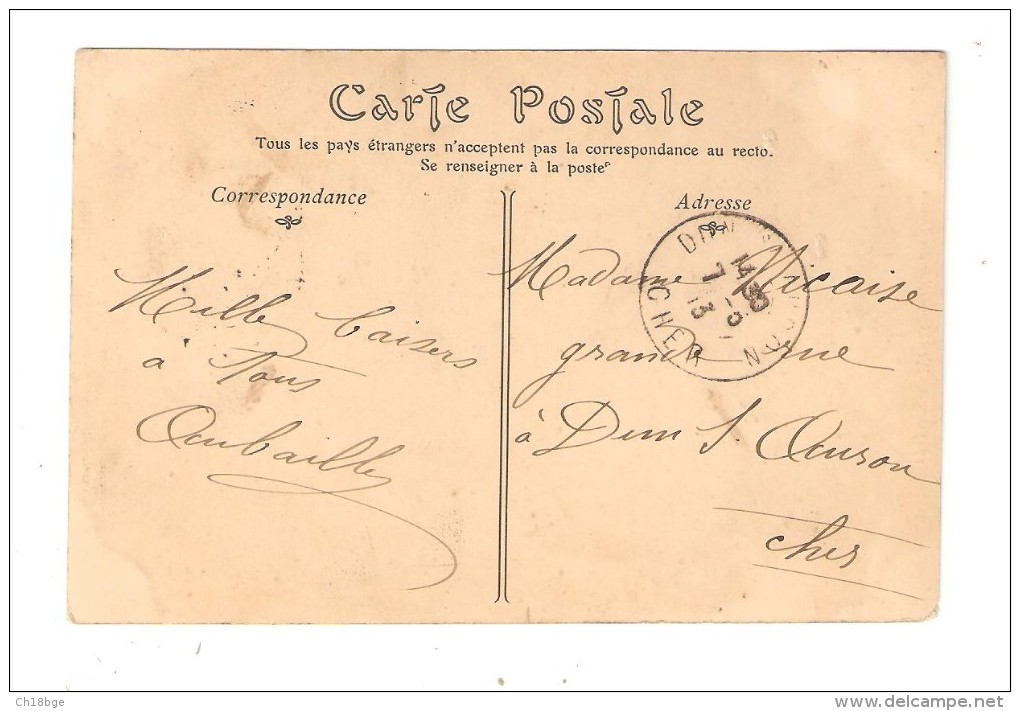 Carte Postale
Tous les pays étrangers n'acceptent pas la correspondance au recto.
Se renseigner à la poste
Correspondance
Adresse
Mille baisers
à Tous
Aubaille
Madame Nicaise
grande rue
à Dun S. Auron
Cher
DUN
14 30
7 -5
13
CHER
Ch18bge
www.delcampe.net